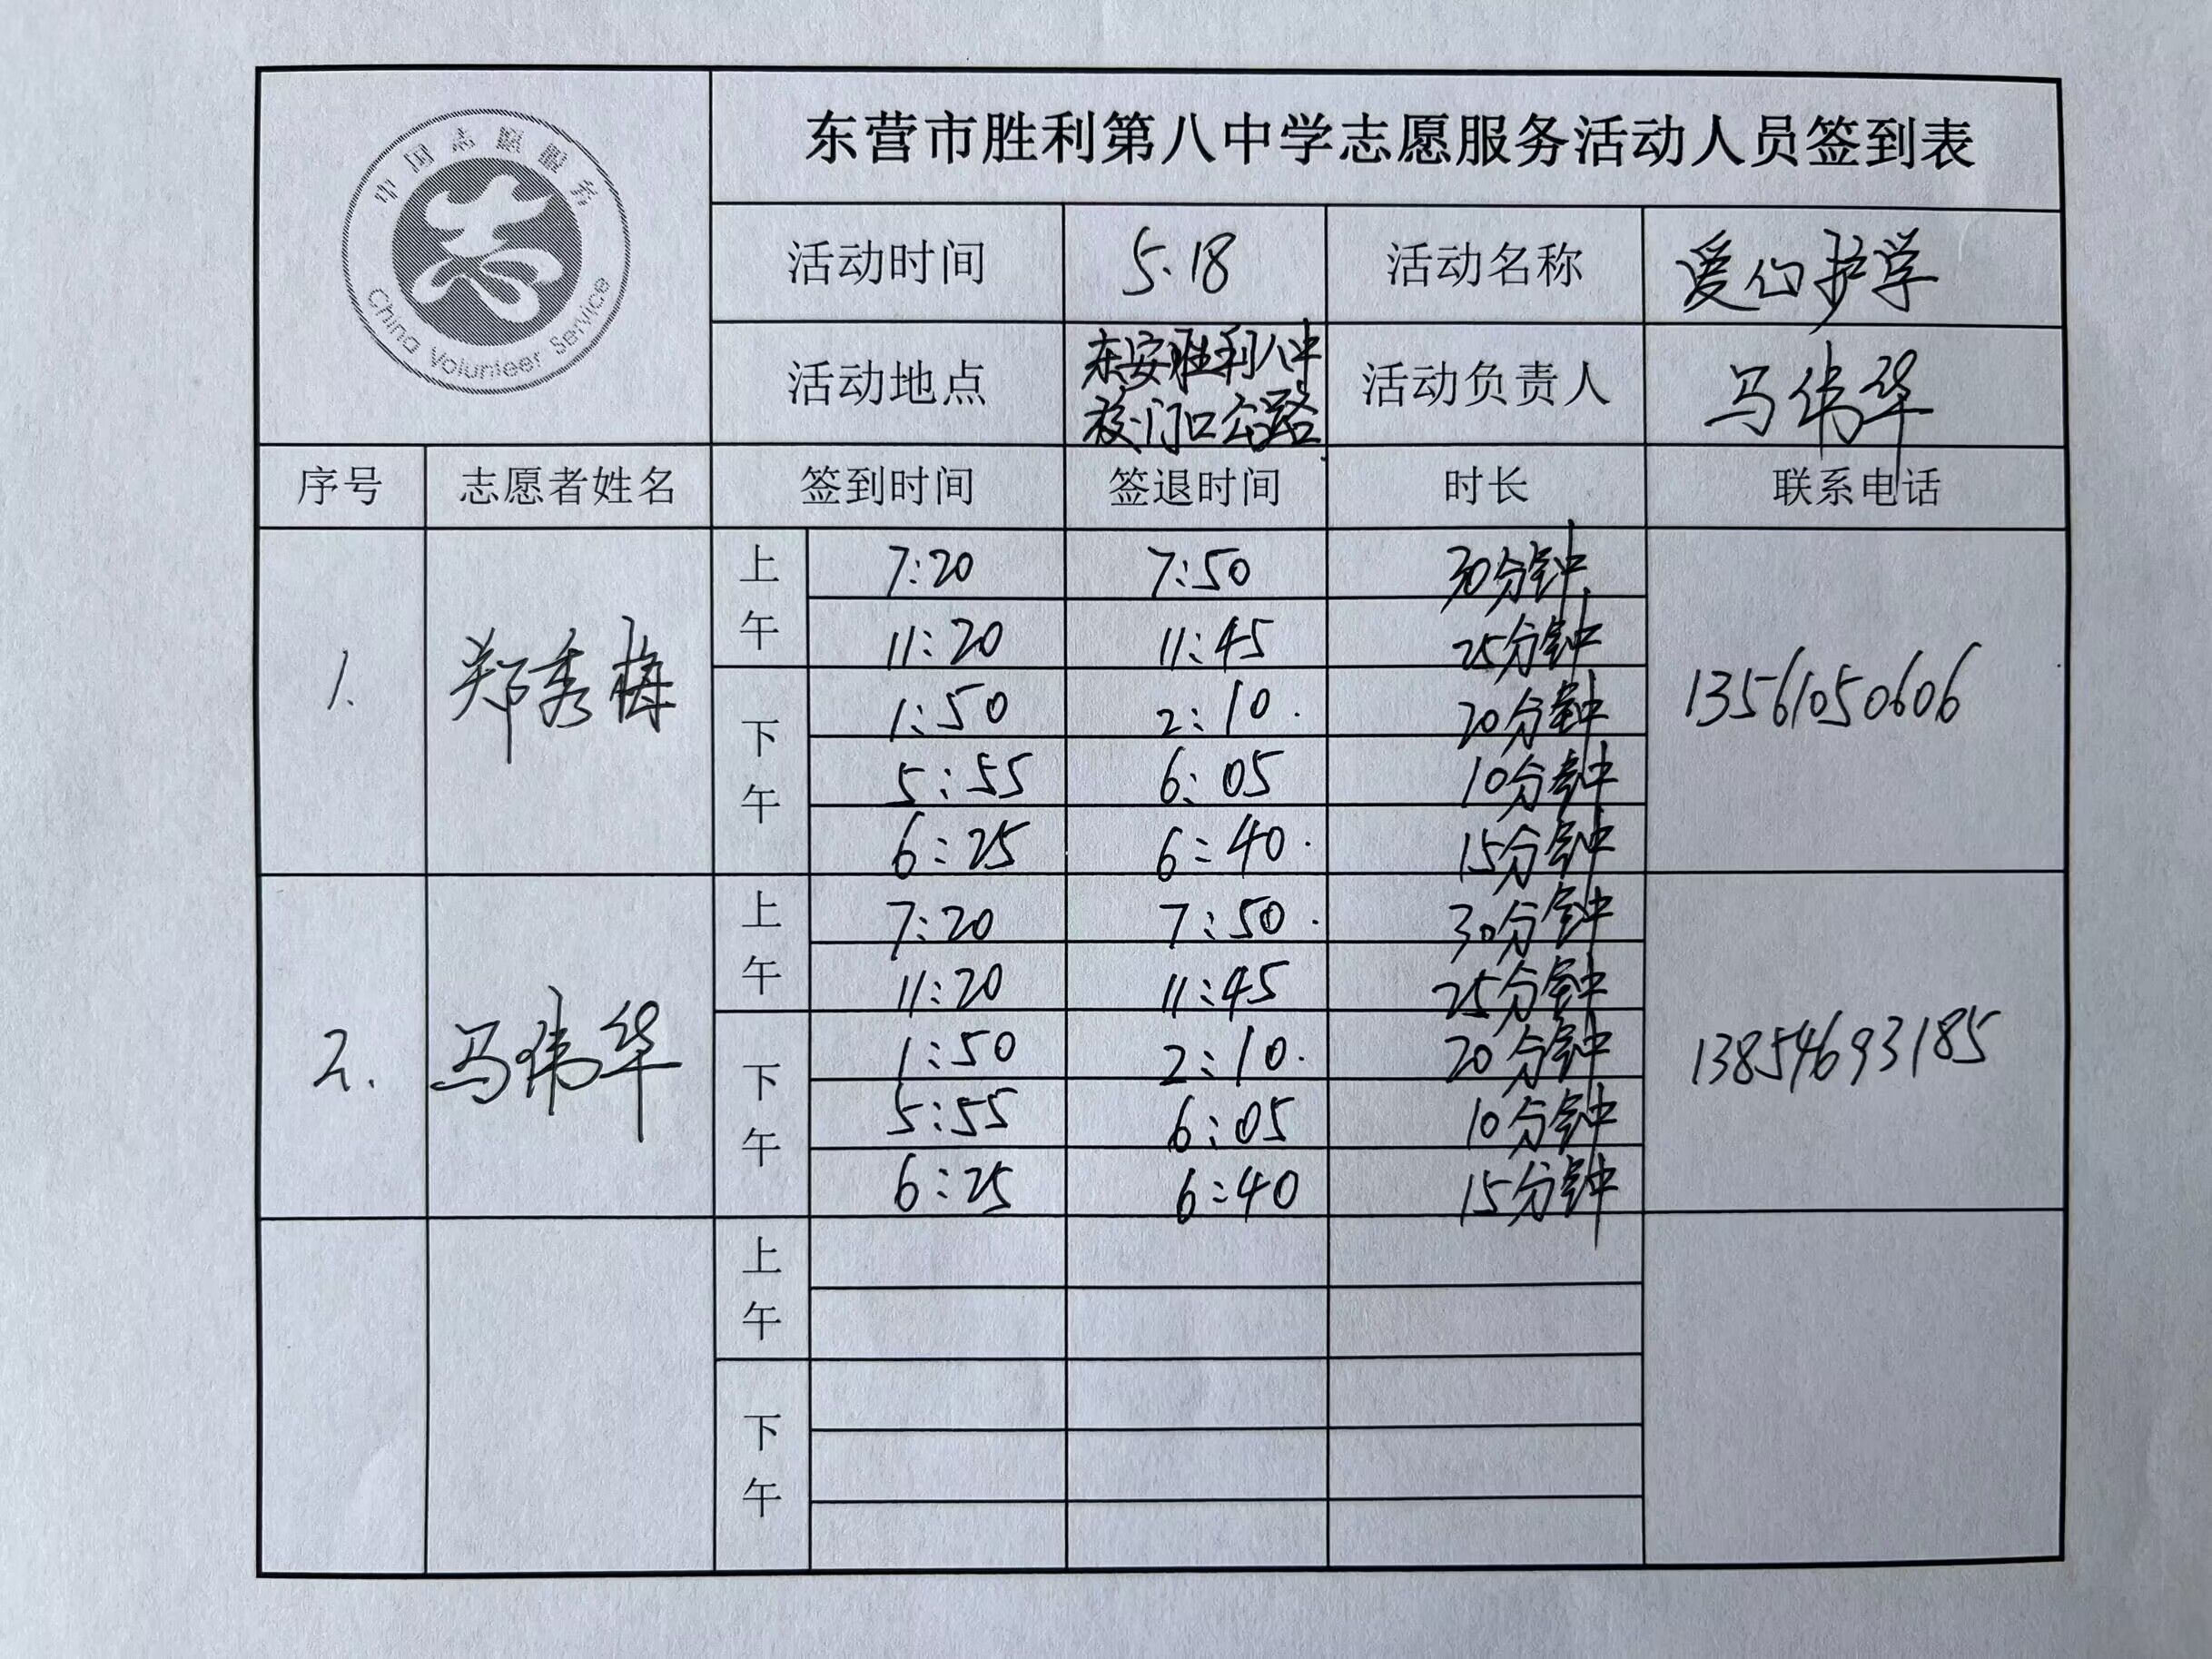 中国志愿服务
China Volunteer Service
东营市胜利第八中学志愿服务活动人员签到表
活动时间 5.18 活动名称 爱心护学
活动地点 东安胜利八中 活动负责人 马伟华
校门口公路
序号 志愿者姓名 签到时间 签退时间 时长 联系电话
上午 7:20 7:50 30分钟
11:20 11:45 25分钟
1. 郑秀梅 下午 1:50 2:10. 20分钟 13561050606
5:55 6:05 10分钟
6:25 6:40. 15分钟
上午 7:20 7:50. 30分钟
11:20 11:45 25分钟
2. 马伟华 下午 1:50 2:10. 20分钟 13854693185
5:55 6:05 10分钟
6:25 6:40 15分钟
上午
下午